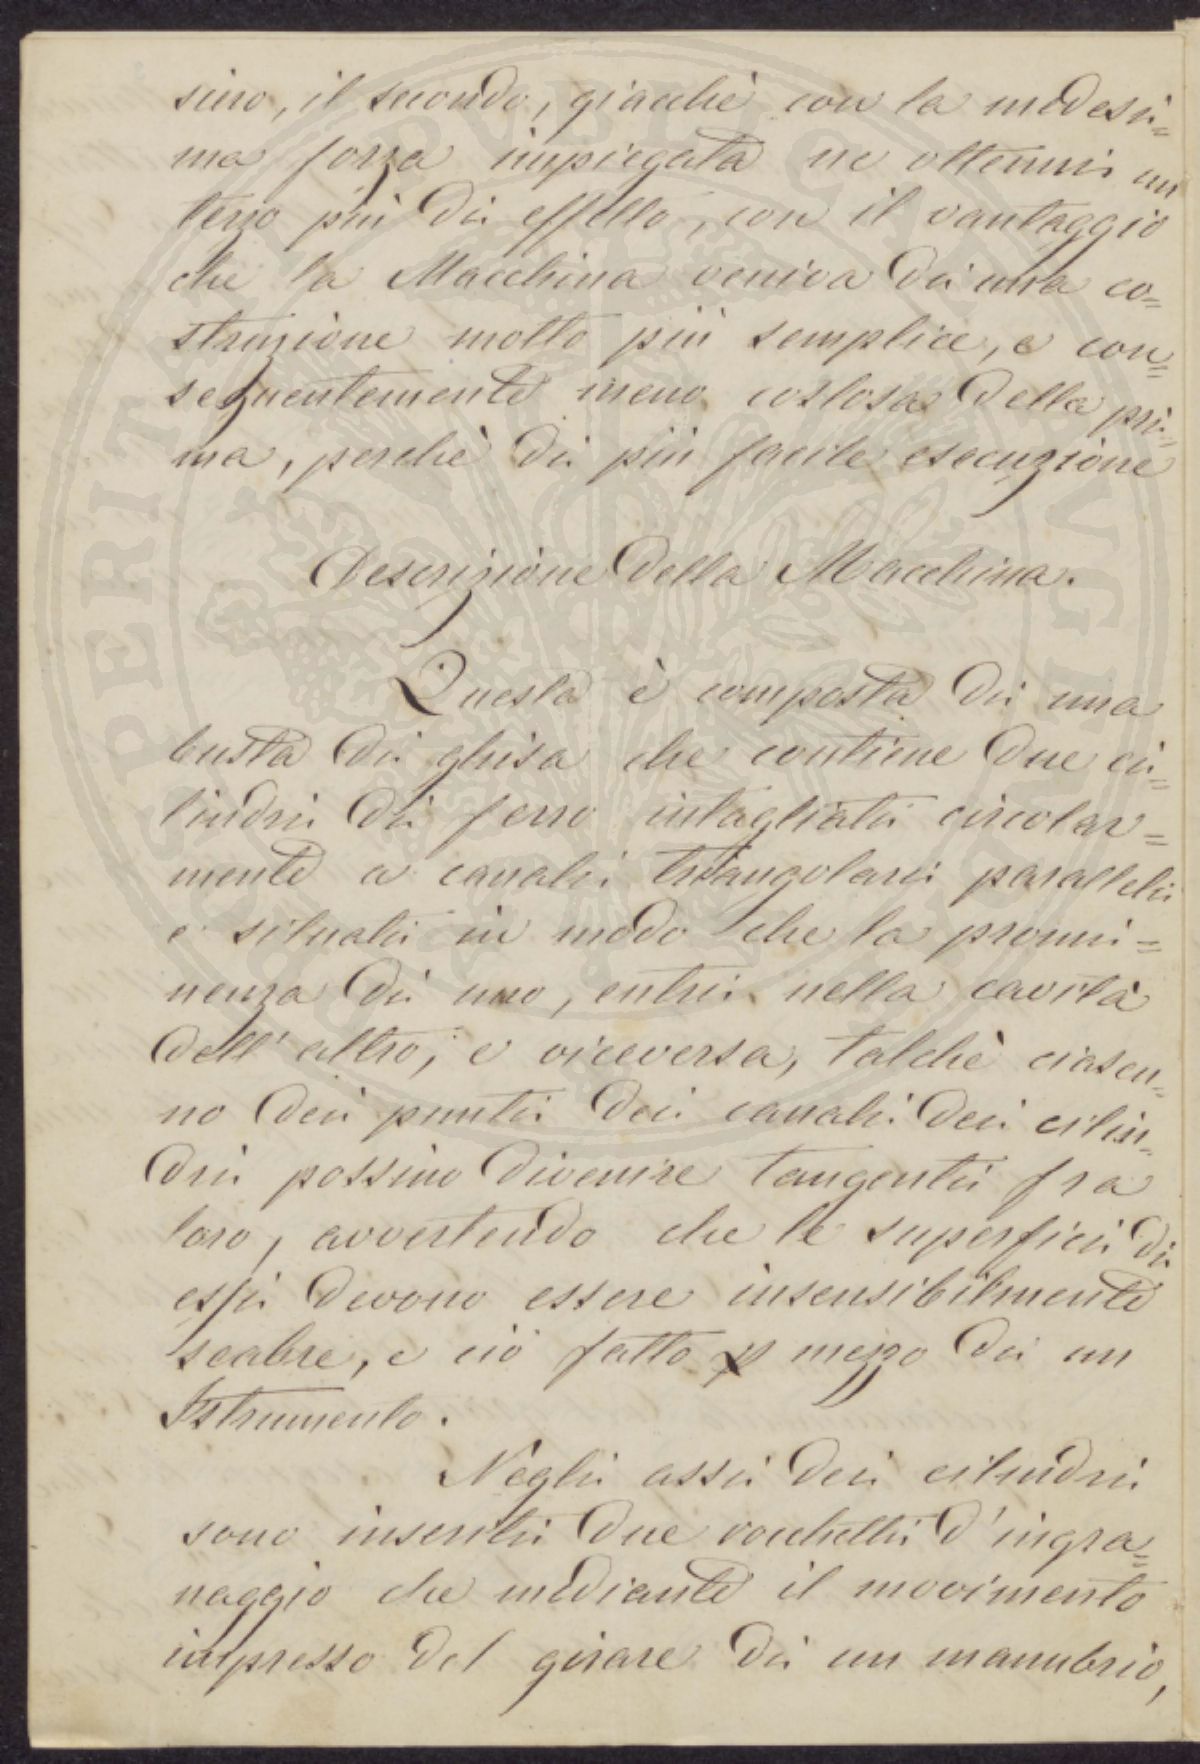 sino, il secondo, giacchè con la medesi=
ma forza impiegata ne ottenni un
terzo più di effetto, con il vantaggio
che la Macchina veniva di una co=
struzione molto più semplice, e con=
seguentemente meno costosa della pri=
ma, perchè di più facile esecuzione
Descrizione della Macchina.
Questa è composta di una
busta di ghisa che contiene due ci=
lindri di ferro intagliati circolar=
mente a canali triangolari paralleli
e situati in modo che la promi=
nenza di uno, entri nella cavità
dell'altro, e viceversa, talchè ciascu=
no dei punti dei canali dei cilin=
dri possino divenire tangenti fra
loro, avvertendo che le superfici di
essi devono essere insensibilmente
scabre, e ciò fatto p mezzo di un
Istrumento.
Negli assi dei cilindri
sono inseriti due rocchetti d'ingra=
naggio che mediante il movimento
impresso del girare di un manubrio,